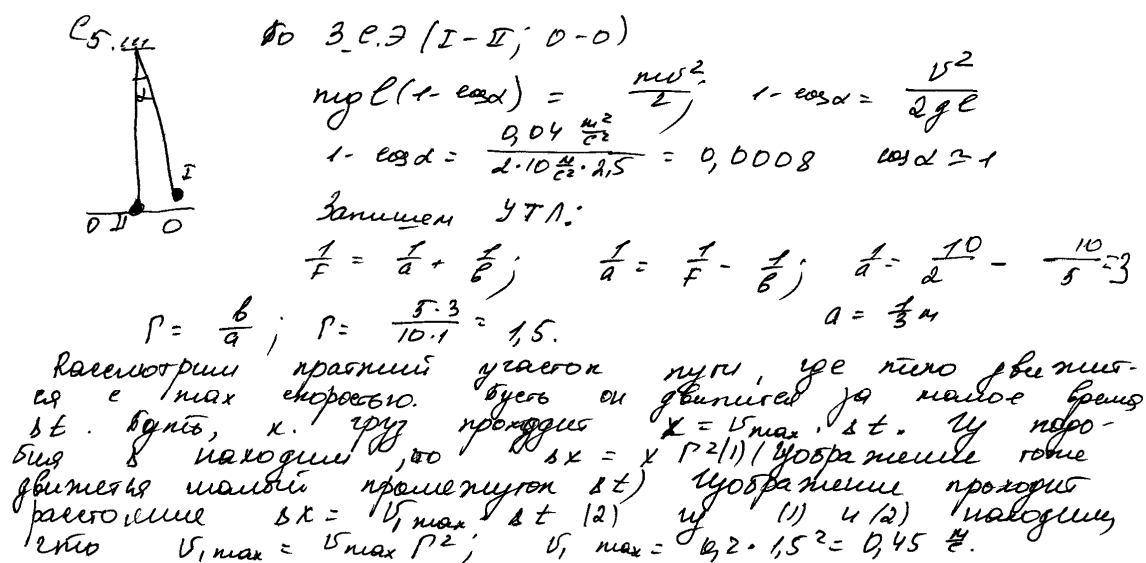 С5. По З.С.Э (I-II; 0-0)
mgl(1-cosα) = mv²/2; 1-cosα = v²/2gl
1-cosα = 0,04 м²/с² / 2·10 м/с²·2,5 = 0,0008 cosα ≃ 1
α
I
0 II 0
Запишем УТЛ:
1/F = 1/a + 1/b; 1/a = 1/F - 1/b; 1/a = 10/2 - 10/5 = 3
a = 1/3 м
Г = b/a; Г = 5·3/10·1 = 1,5.
Рассмотрим кратний участок пути, где тело движит-
ся с max скоростью. Пусть он движится за малое время
Δt. Путь, к. груз проходит x = vmax·Δt. Из подо-
бия Δ находим, то Δx = x Г²(1) (Изображение тоже
движется малый промежуток Δt) Изображение проходит
расстояние Δx = v₁max·Δt (2) из (1) и (2) находим,
что v₁max = vmax Г²; v₁ max = 0,2·1,5² = 0,45 м/с.